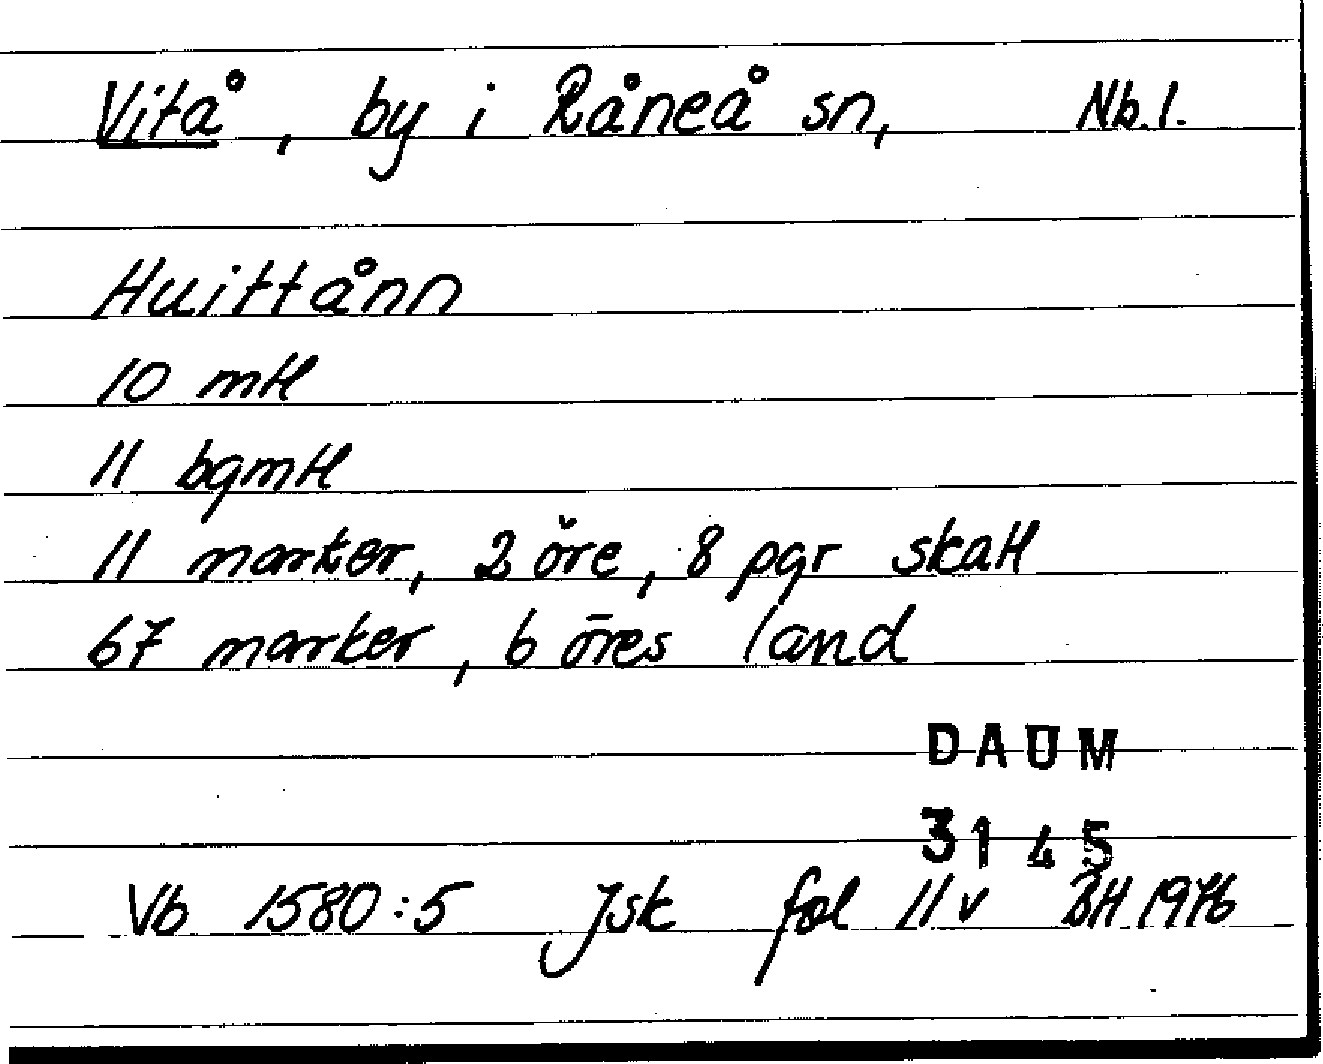 Vitå, by i Råneå sn, Nb. l.
Huittånn
10 mtl
11 bgmtl
11 marker, 2 öre, 8 pgr skatt
67 marker, 6 öres land
DAUM
3145
Vb 1580:5 Jsk fol 11 v BH 1976